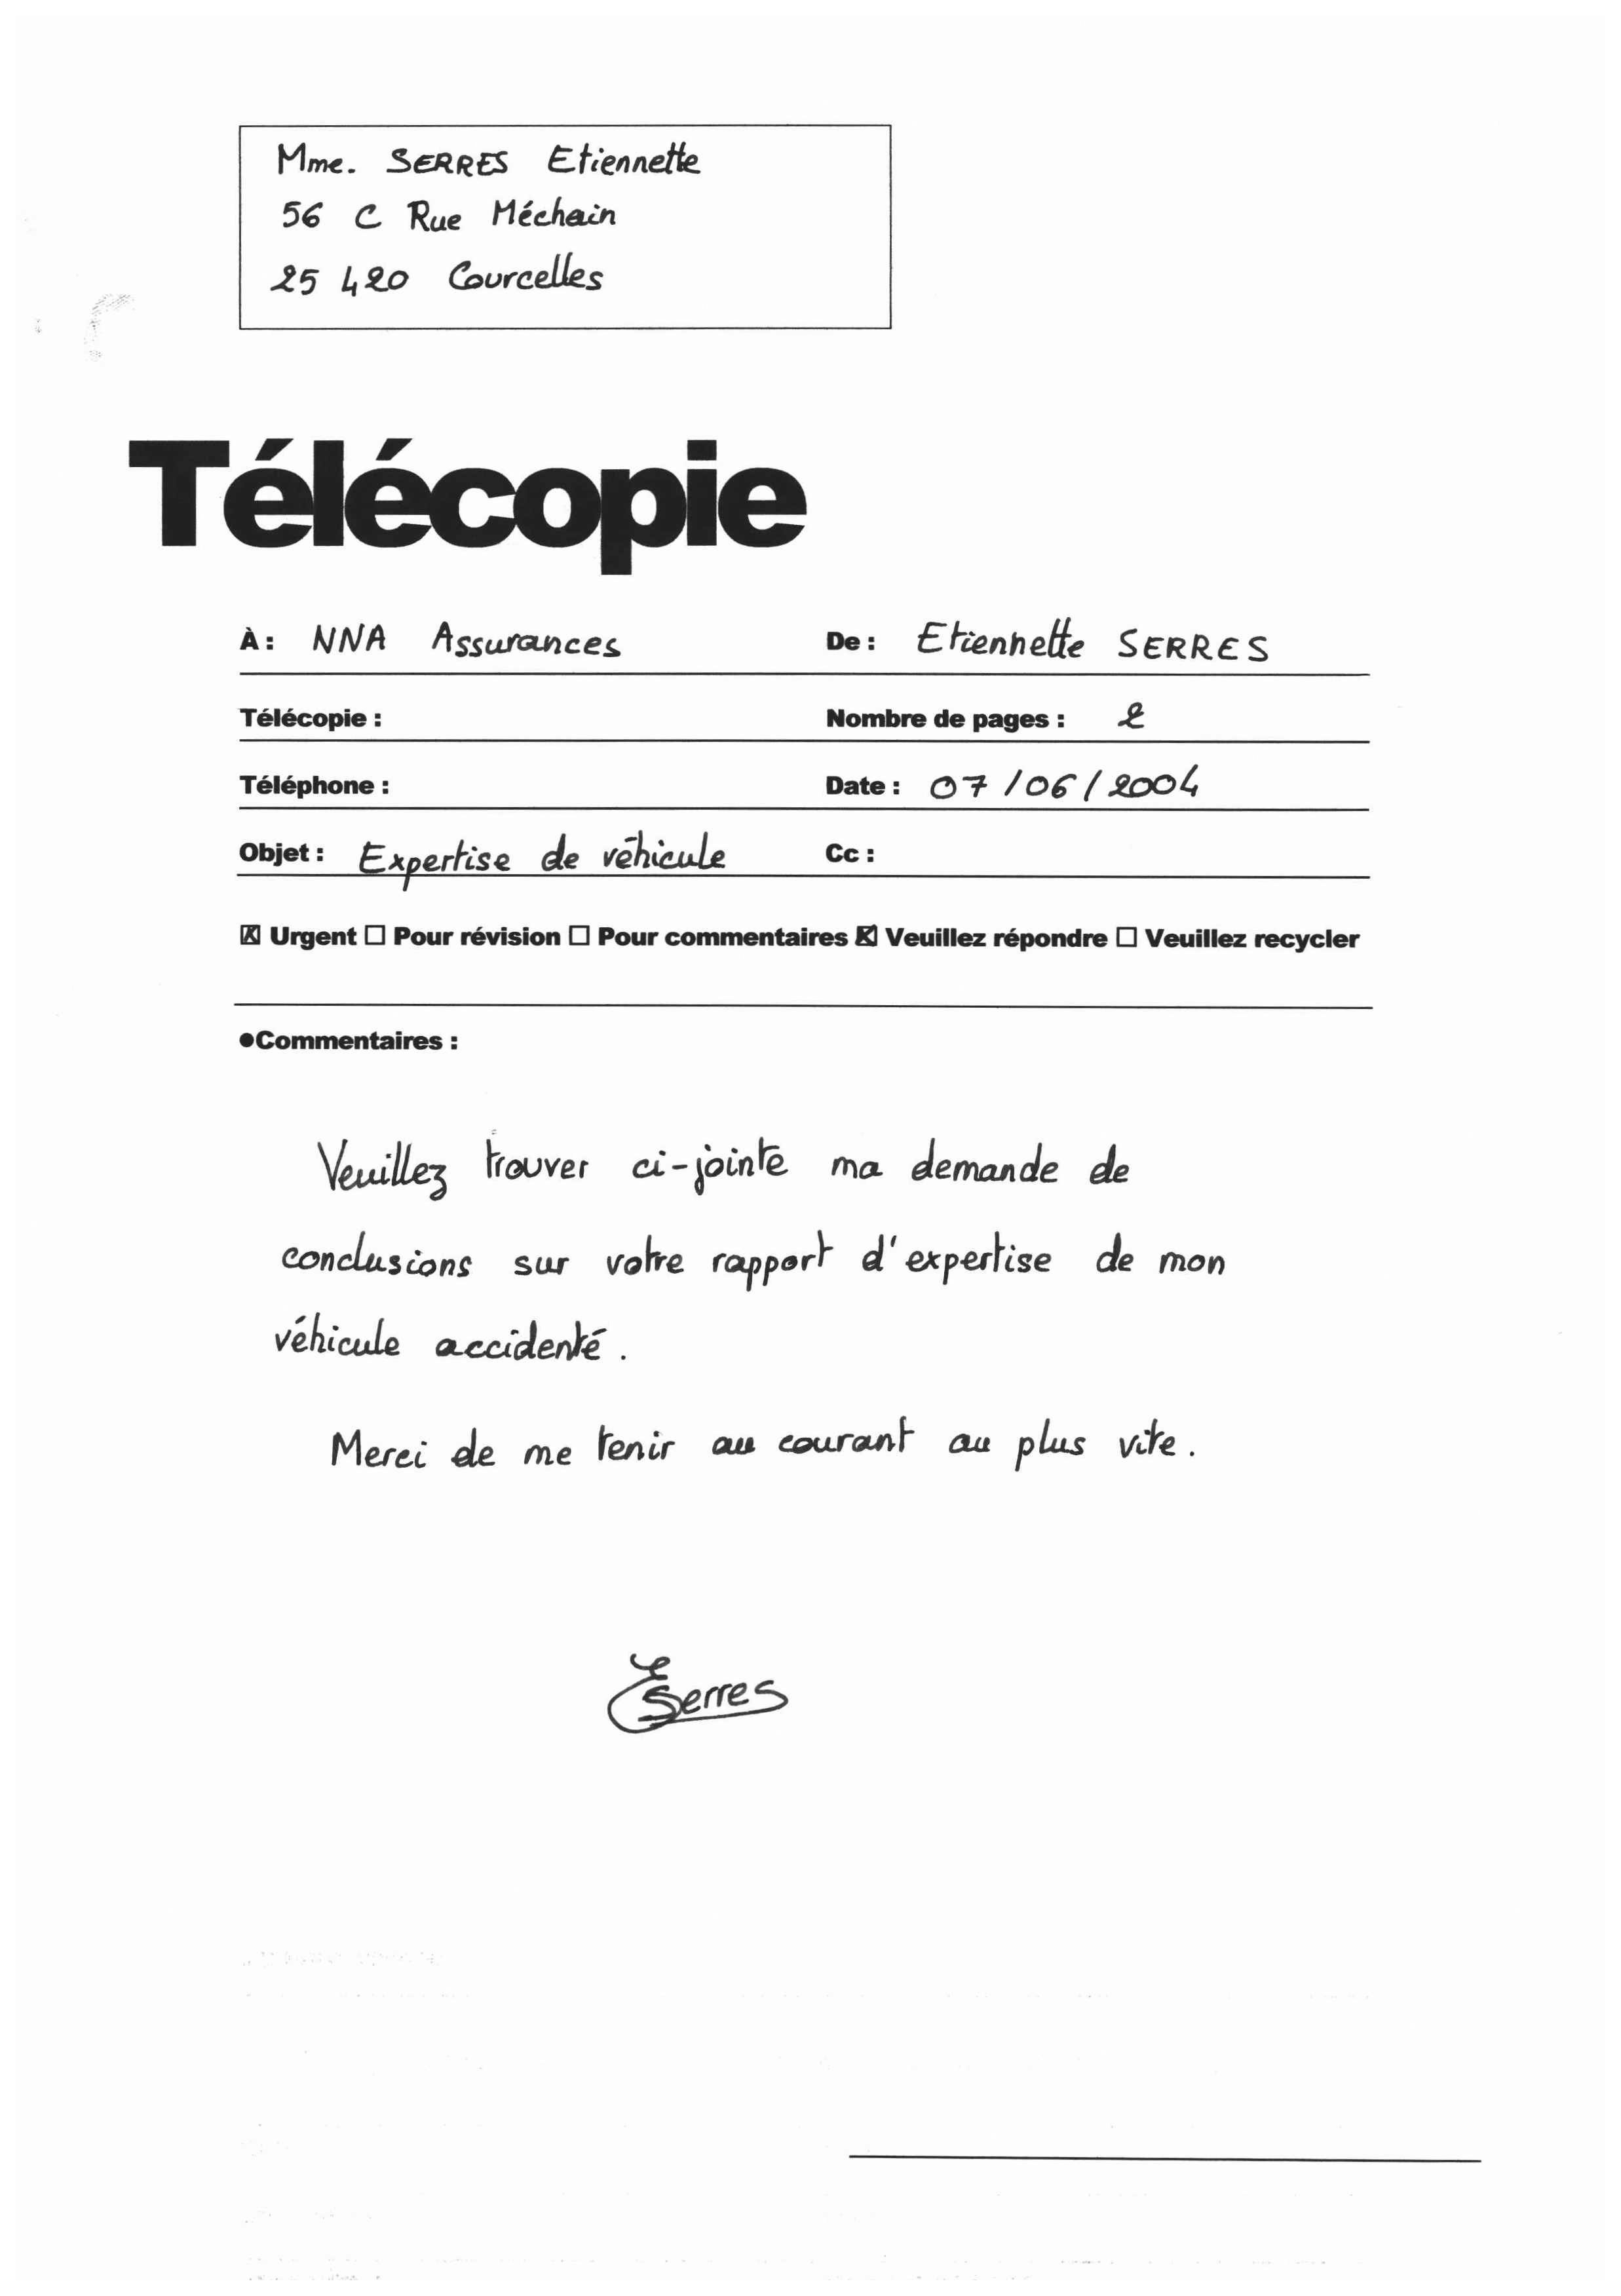 Mme. SERRES Etiennette
56 C Rue Méchain
25 420 Courcelles
Télécopie
À : NNA Assurances De : Etiennette SERRES
Télécopie : Nombre de pages : 2
Téléphone : Date : 07/06/2004
Objet : Expertise de véhicule Cc :
☒ Urgent ☐ Pour révision ☐ Pour commentaires ☒ Veuillez répondre ☐ Veuillez recycler
●Commentaires :
Veuillez trouver ci-jointe ma demande de
conclusions sur votre rapport d'expertise de mon
véhicule accidenté.
Merci de me tenir au courant au plus vite.
E Serres